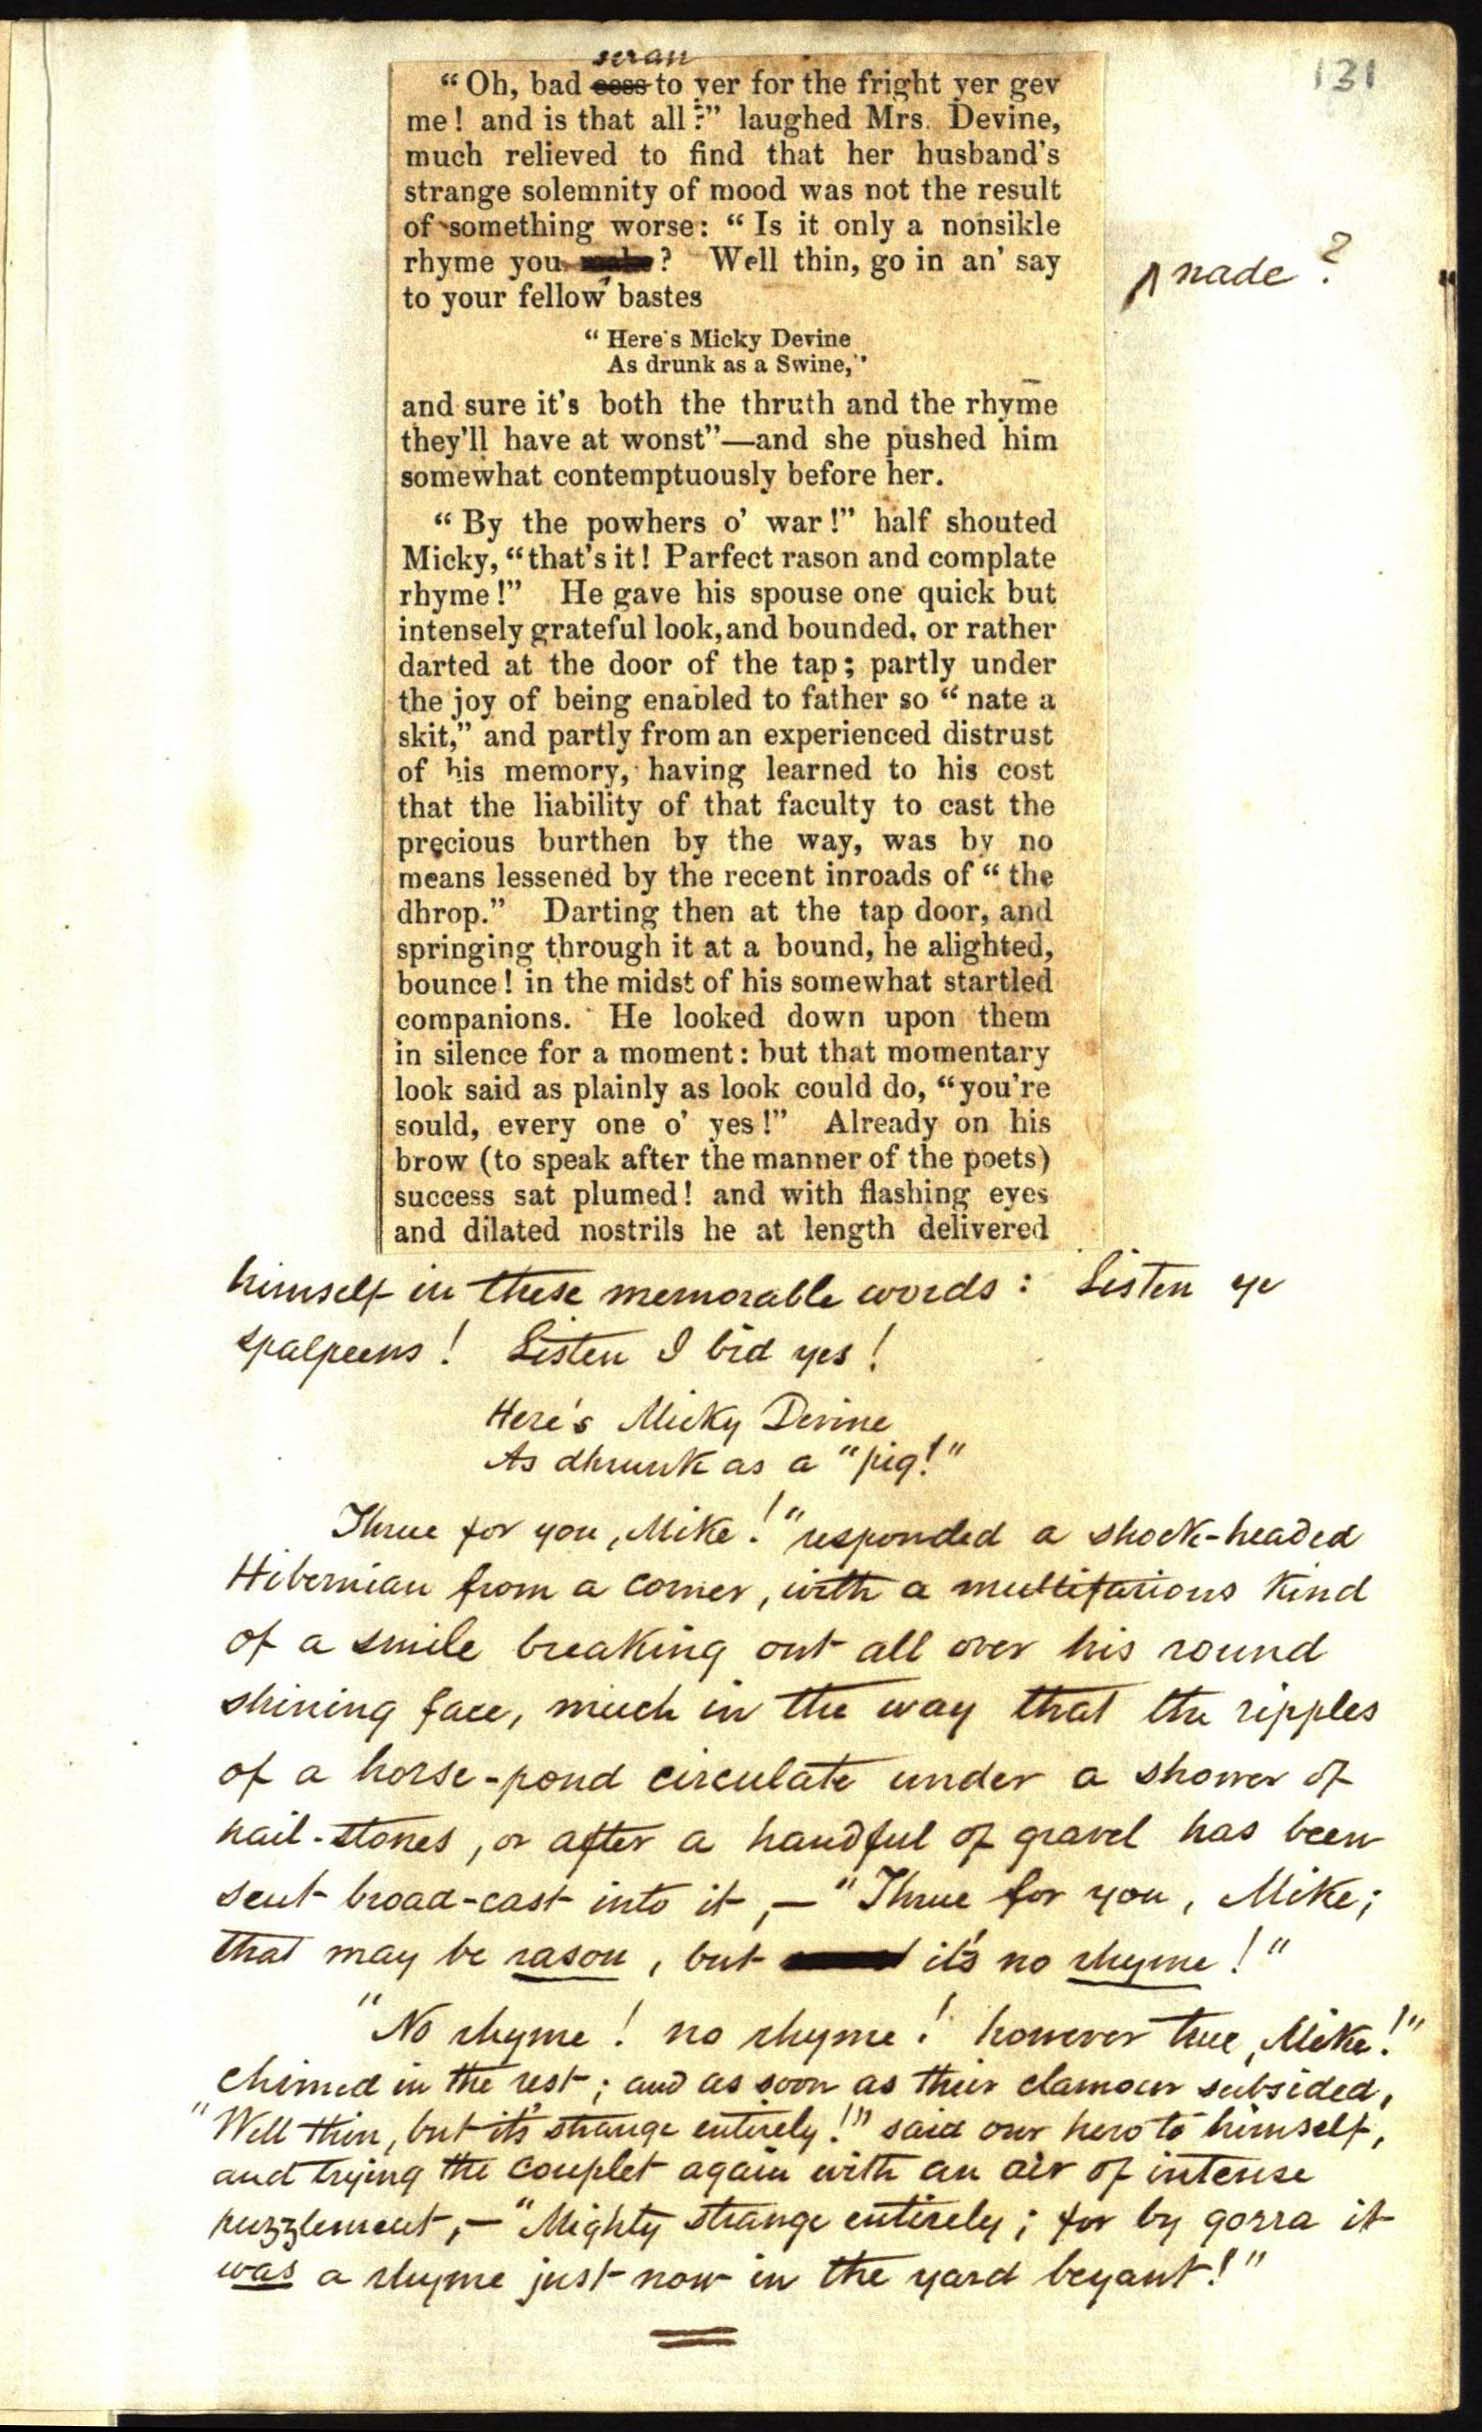 131
seran
“Oh, bad cess to yer for the fright yer gev
me! and is that all?” laughed Mrs. Devine,
much relieved to find that her husband's
strange solemnity of mood was not the result
of something worse: “Is it only a nonsikle
rhyme you ? Well thin, go in an' say
nade?
to your fellow bastes
“Here's Micky Devine
As drunk as a Swine,”
and sure it's both the thruth and the rhyme
they'll have at wonst”—and she pushed him
somewhat contemptuously before her.
“By the powhers o' war!” half shouted
Micky, “that's it! Parfect rason and complate
rhyme!” He gave his spouse one quick but
intensely grateful look, and bounded, or rather
darted at the door of the tap; partly under
the joy of being enabled to father so “nate a
skit,” and partly from an experienced distrust
of his memory, having learned to his cost
that the liability of that faculty to cast the
precious burthen by the way, was by no
means lessened by the recent inroads of “the
dhrop.” Darting then at the tap door, and
springing through it at a bound, he alighted,
bounce! in the midst of his somewhat startled
companions. He looked down upon them
in silence for a moment: but that momentary
look said as plainly as look could do, “you're
sould, every one o' yes!” Already on his
brow (to speak after the manner of the poets)
success sat plumed! and with flashing eyes
and dilated nostrils he at length delivered
himself in these memorable words: Listen ye
spalpeens! Listen I bid yes!
Here's Micky Devine
As dhrunk as a "pig!"
Thrue for you, Mike!" responded a shock-headed
Hibernian from a corner, with a multifarious kind
of a smile breaking out all over his round
shining face, much in the way that the ripples
of a horse-pond circulate under a shower of
hail-stones, or after a handful of gravel has been
sent broad-cast into it,— "Thrue for you, Mike;
that may be rason, but it's no rhyme!"
"No rhyme! no rhyme! however true, Mike!"
chimed in the rest; and as soon as their clamour subsided,
"Well thin, but it's strange entirely!" said our hero to himself,
and trying the couplet again with an air of intense
puzzlement,— "Mighty strange entirely; for by gorra it
was a rhyme just now in the yard beyant!"